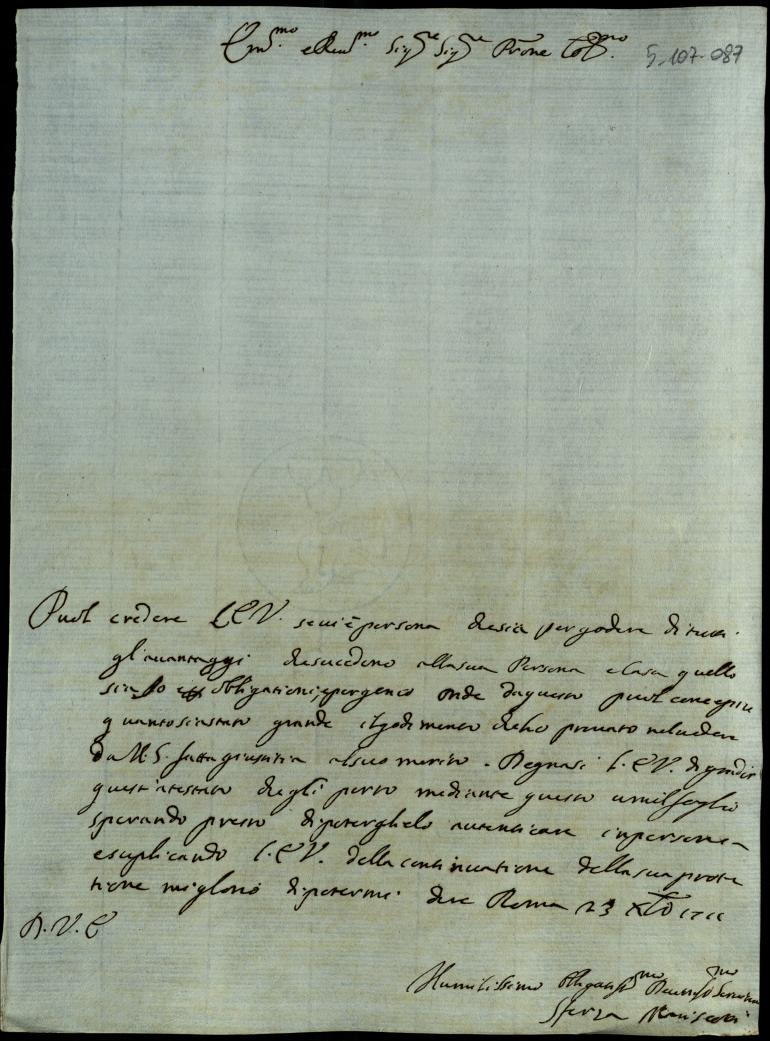 Em.mo e Reu.mo Sig.re Sig.re Prōne Col.mo
5-107-087
Puol credere l'E.V. se ui è persona che sia per godere di tutti
gl'auantaggi che succedono alla sua Persona e Casa quello
sia Io obligationi, e per genio onde da questo puol concepire
quanto sia stato grande il godimento che ho prouato nel uedere
da N.S. fatta giustitia al suo merito. Degnasi l'E.V. di gradir
quest'attestato che gli porto mediante questo umil foglio
sperando presto di poterghelo autenticare in persona
e suplicando l'E.V. della continuatione della sua prote
tione mi glorio di potermi dire Roma 23 Xbre 1711
D.V.E
Humilissimo Obligatiss.mo Seruitore
Sforza